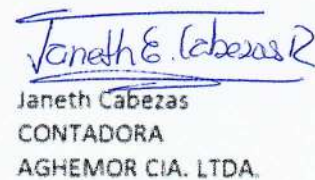 Janeth E. Cabezas R
Janeth Cabezas
CONTADORA
AGHEMOR CIA. LTDA.